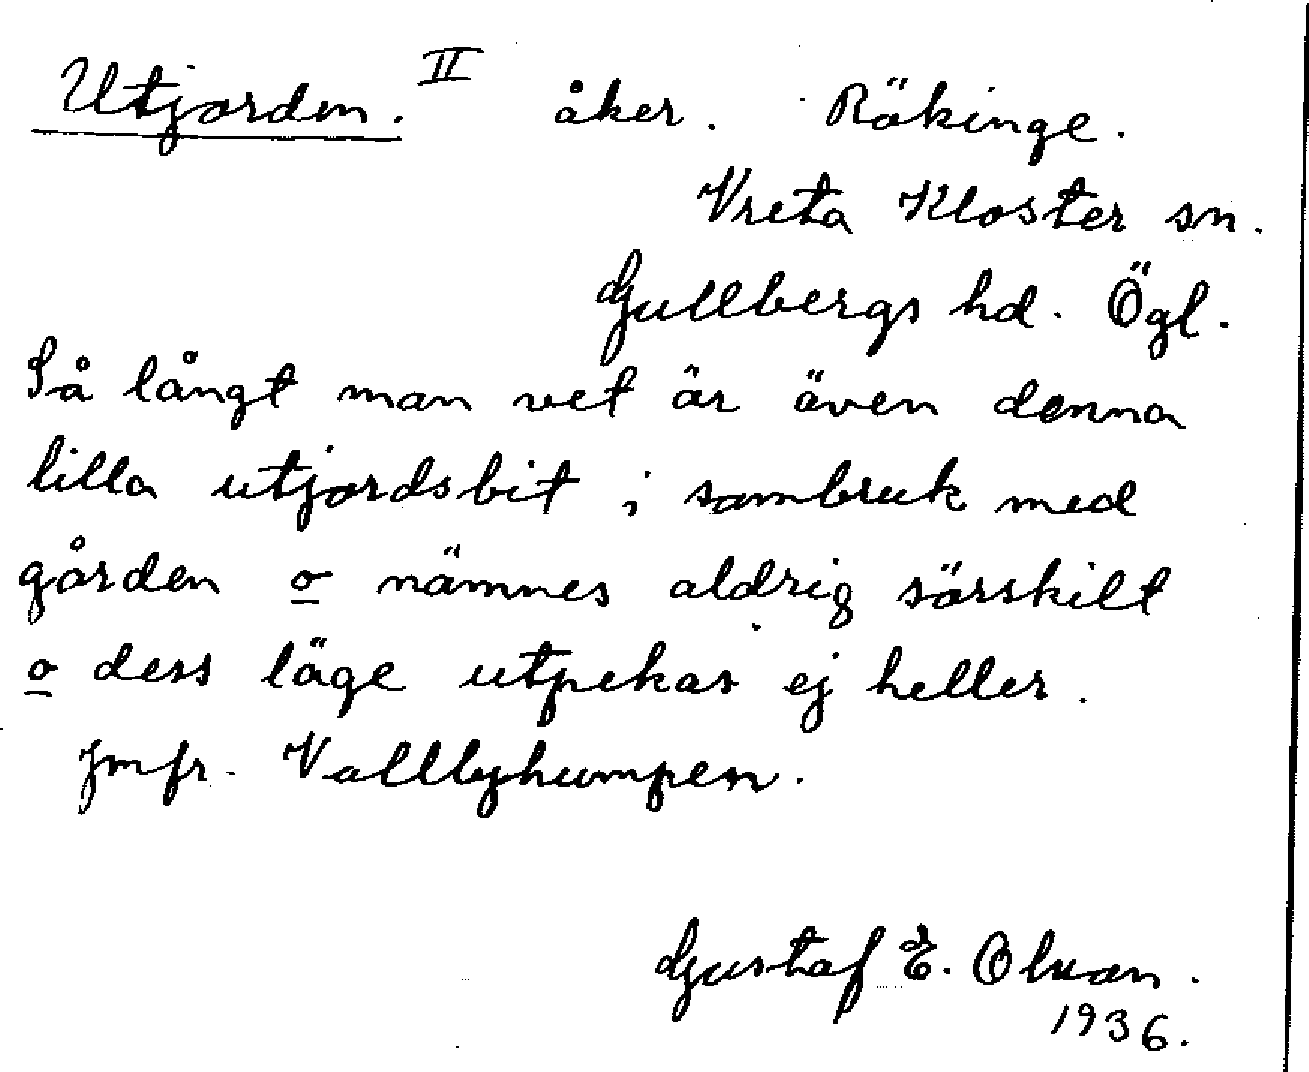 Utjorden. II åker. Räkinge.
Vreta Kloster sn.
Gullbergs hd. Ögl.
Så långt man vet är även denna
lilla utjordsbit i sambruk med
gården o nämnes aldrig särskilt
o dess läge utpekas ej heller.
Jmfr. Vallbyhumpen.
Gustaf E. Olsson.
1936.